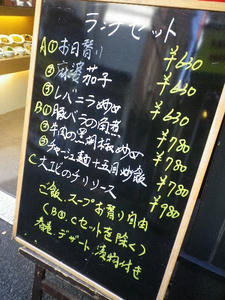 ランチセット
A① お日替り ¥630
② 麻婆茄子 ¥630
③ レバニラ炒め ¥630
B① 豚バラの角煮 ¥780
② 牛肉の黒胡椒炒め ¥780
③ チャーシュー麺+五目炒飯 ¥780
C 大エビのチリソース ¥780
ご飯、スープお替り自由
(B③、Cセットを除く)
春巻、デザート、漬物付き